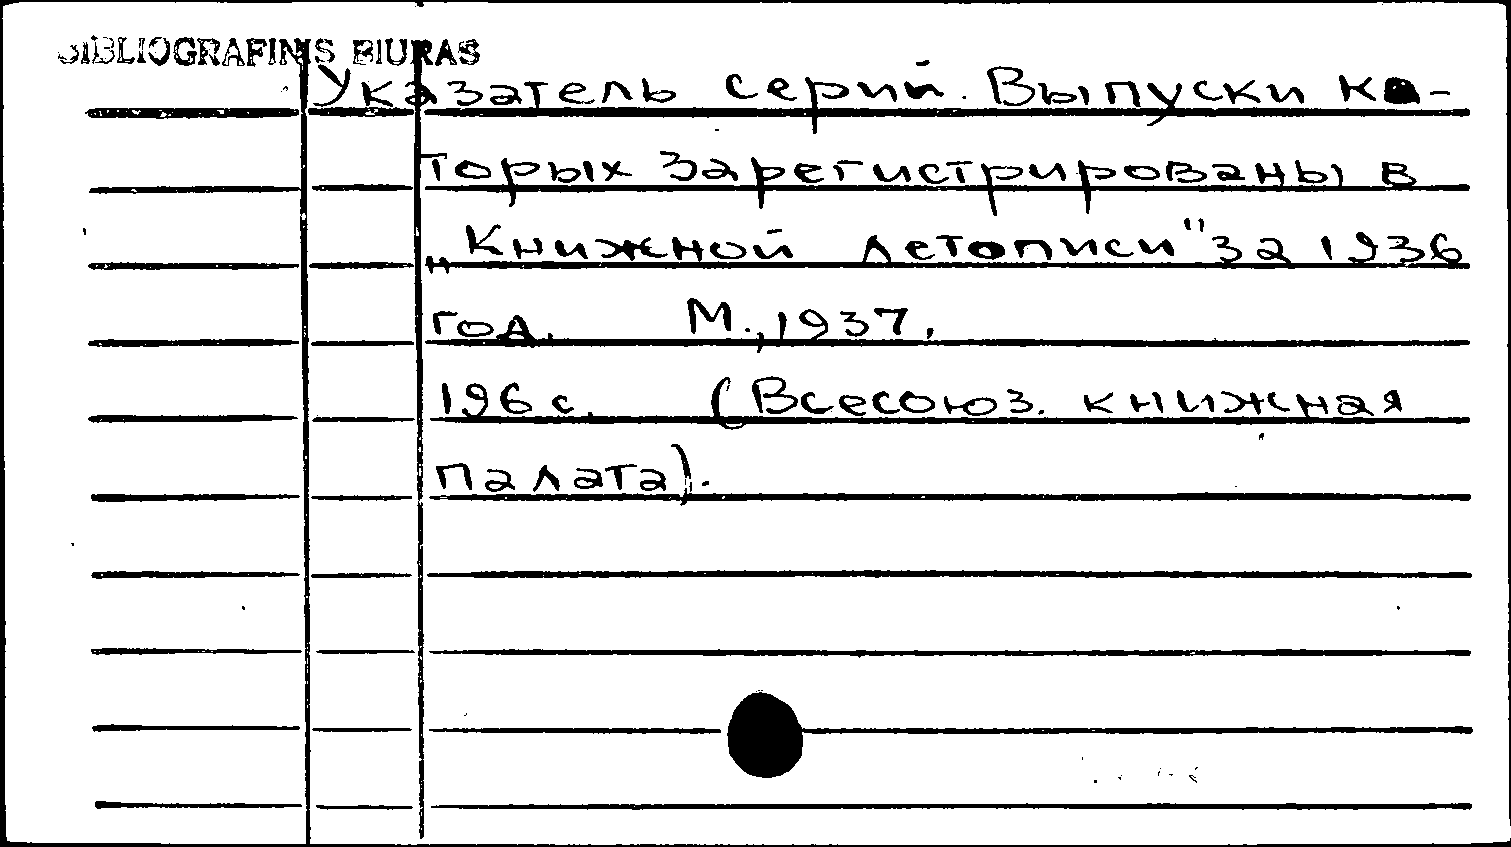 BIBLIOGRAFINIS BIURAS
Указатель серий. Выпуски ко-
торых зарегистрированы в
„Книжной летописи" за 1936
год. М., 1937.
196 с. (Всесоюз. книжная
палата).